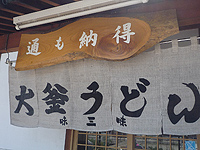 通も納得
大釜うどん
味三味